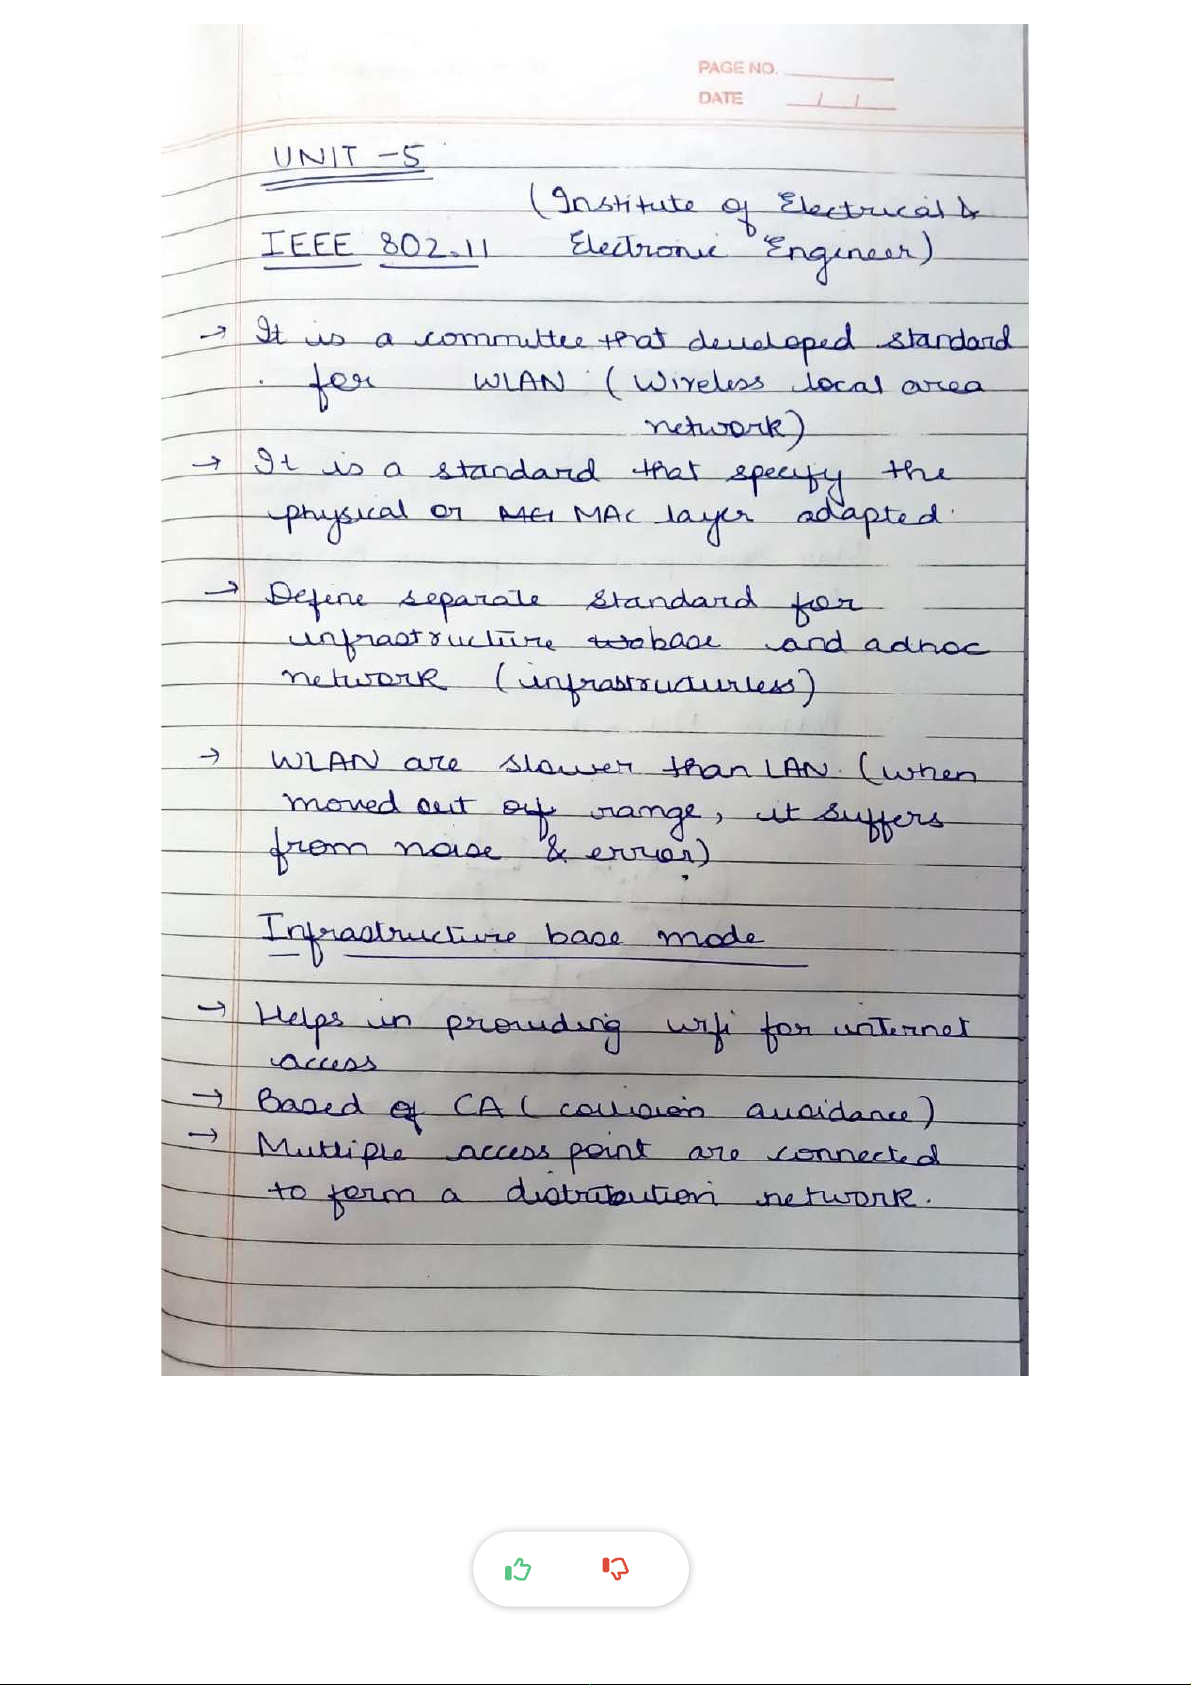 PAGE NO.
DATE / /
UNIT - 5
(Institute of Electrical &
IEEE 802.11 Electronic Engineer)
→ It is a committee that developed standard
for WLAN (Wireless local area
network)
→ It is a standard that specify the
physical or MAC layer adapted.
→ Define separate standard for
infrastructure base and adhoc
network (infrastructurless)
→ WLAN are slower than LAN. (when
moved out of range, it suffers
from noise & error)
Infrastructure base mode
→ Helps in providing wifi for internet
access
→ Based of CA (collision avoidance)
→ Multiple access point are connected
to form a distribution network.